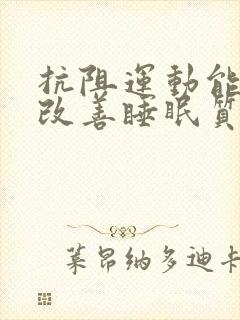 抗阻運動能
改善睡眠質
萊昂纳多迪卡